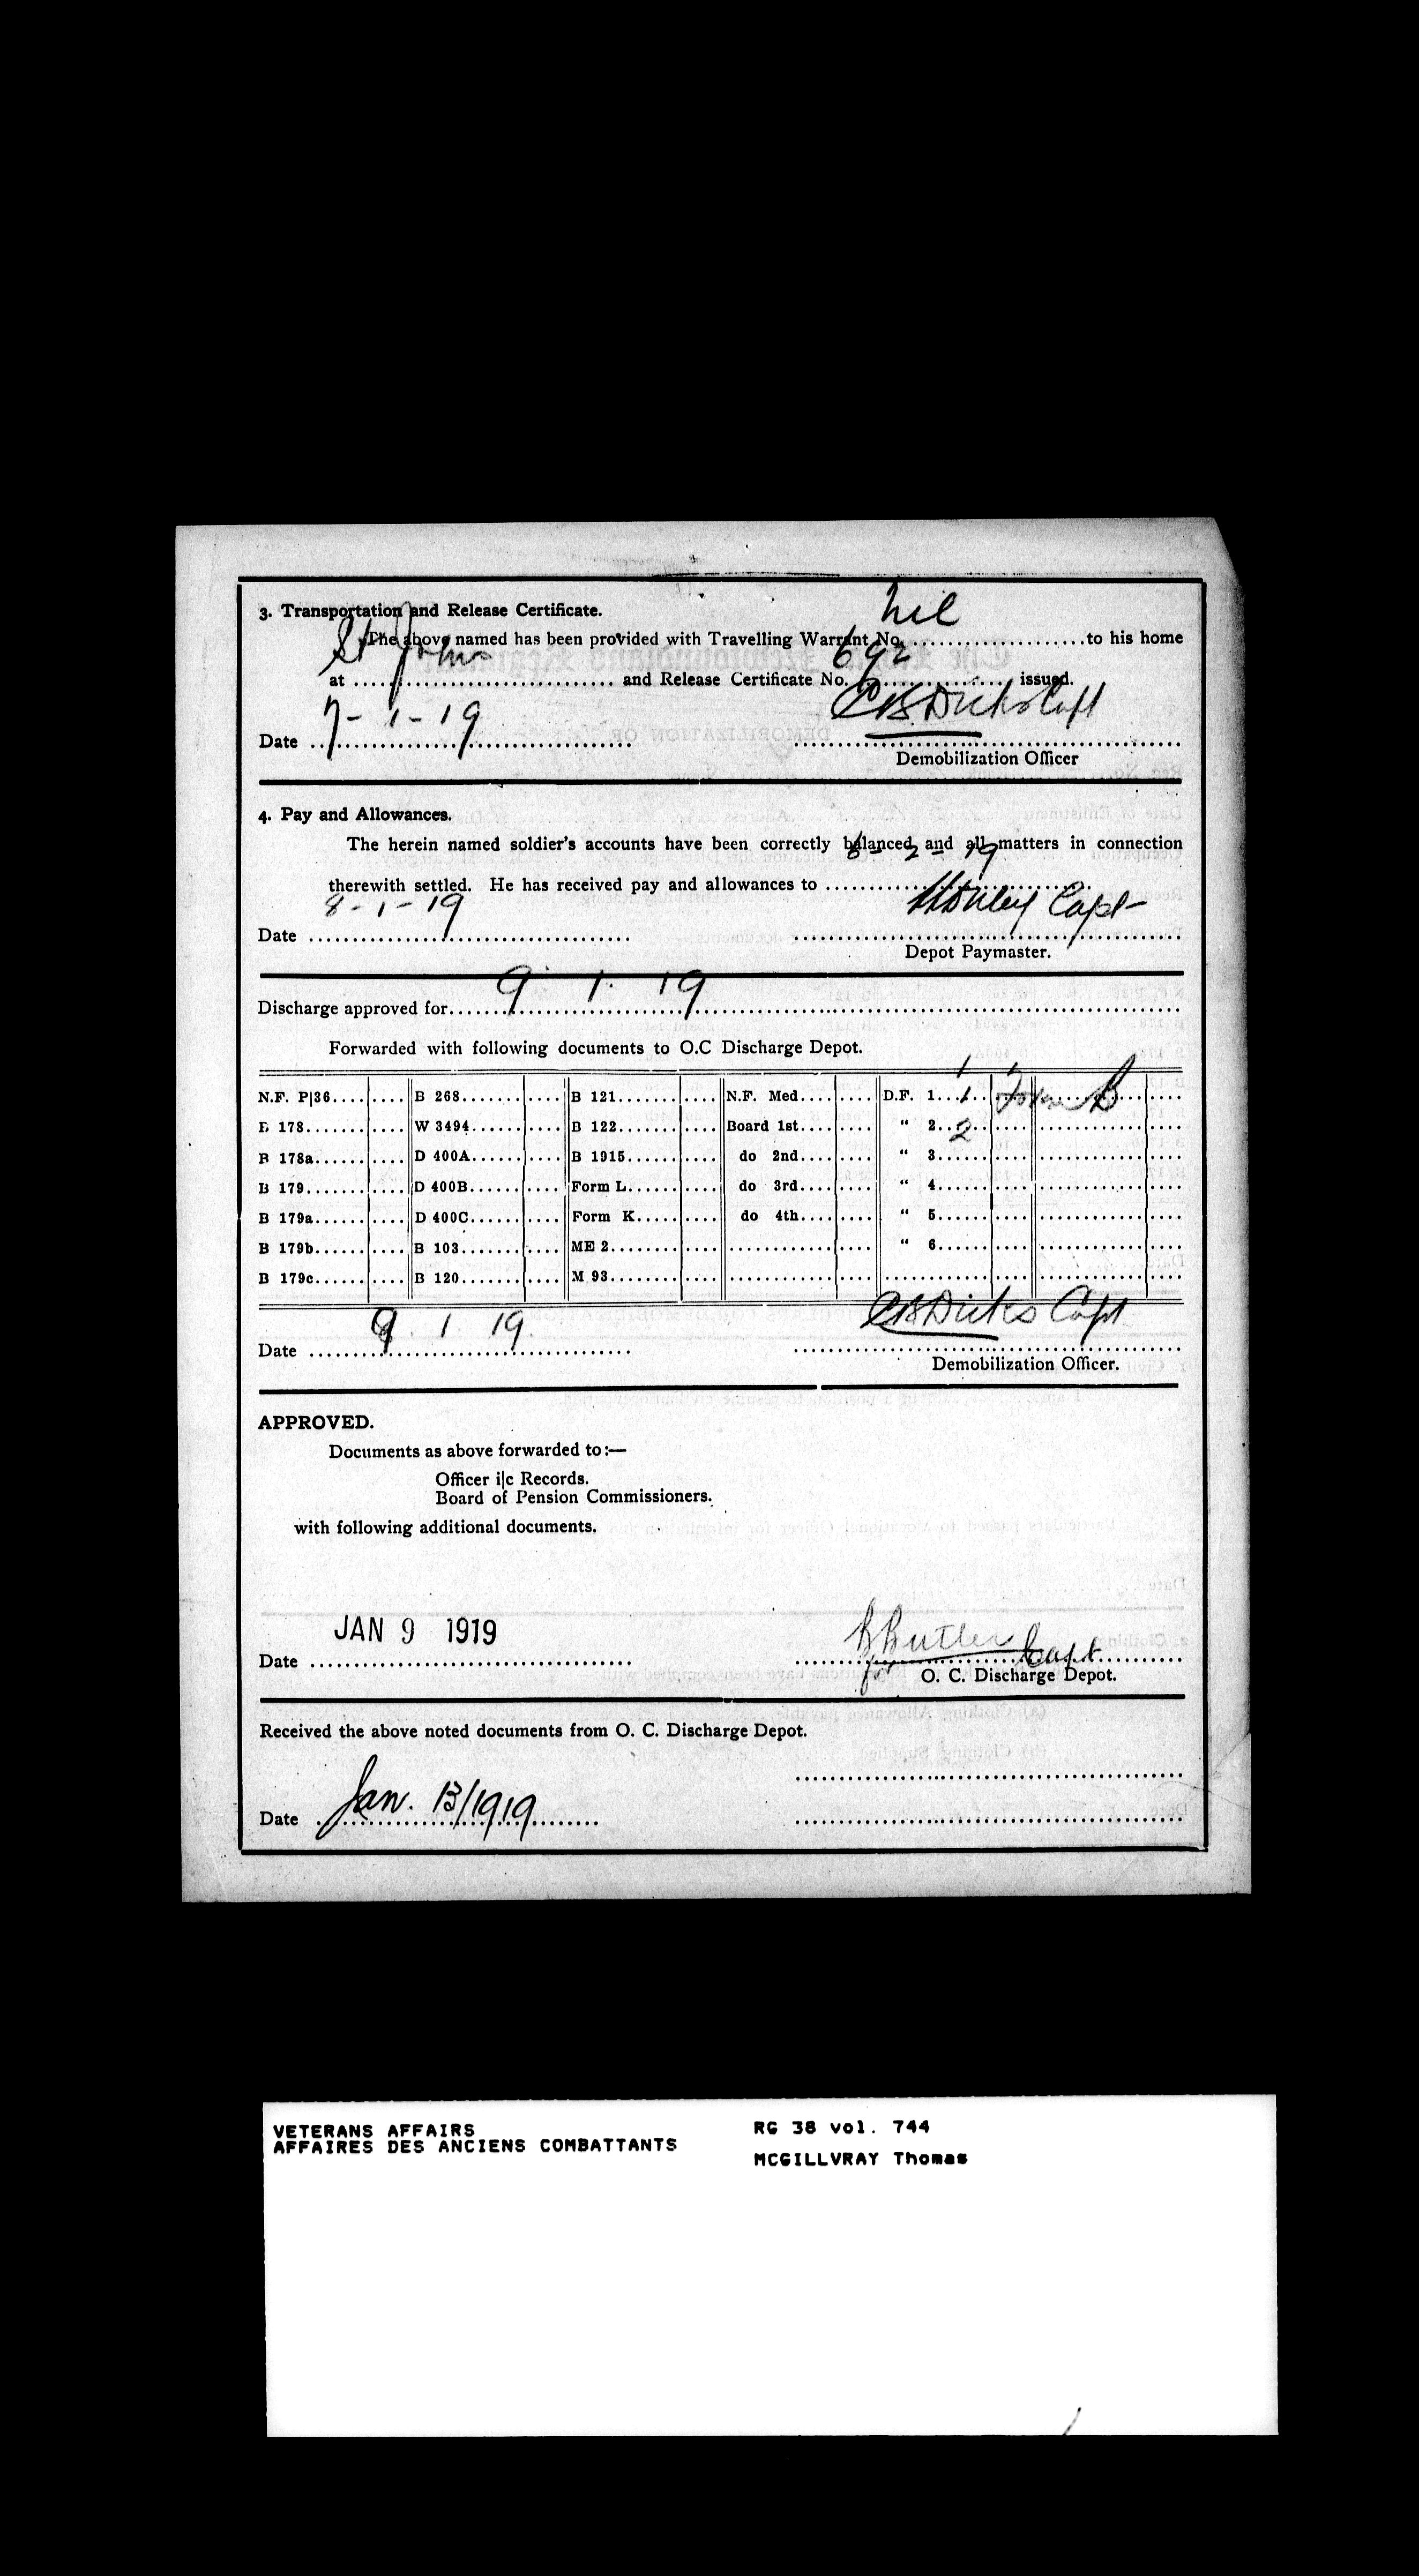 3. Transportation and Release Certificate.
The above named has been provided with Travelling Warrant No. nil to his home
at St Johns and Release Certificate No. 692 issued.
Date 7-1-19 CB Dicks Capt
Demobilization Officer
4. Pay and Allowances.
The herein named soldier's accounts have been correctly balanced and all matters in connection
therewith settled. He has received pay and allowances to 6-2-19
Date 8-1-19 Capt
Depot Paymaster.
Discharge approved for 9 1 19
Forwarded with following documents to O.C Discharge Depot.
N.F. P|36 B 268 B 121 N.F. Med D.F. 1 1 Form B
B 178 W 3494 B 122 Board 1st " 2 2
B 178a D 400A B 1915 do 2nd " 3
B 179 D 400B Form L do 3rd " 4
B 179a D 400C Form K do 4th " 5
B 179b B 103 ME 2 " 6
B 179c B 120 M 93
Date 9 1 19 CB Dicks Capt
Demobilization Officer.
APPROVED.
Documents as above forwarded to:—
Officer i|c Records.
Board of Pension Commissioners.
with following additional documents.
Date JAN 9 1919 Butler Capt
for O. C. Discharge Depot.
Received the above noted documents from O. C. Discharge Depot.
Date Jan. 13/1919
VETERANS AFFAIRS RG 38 vol. 744
AFFAIRES DES ANCIENS COMBATTANTS
MCGILLVRAY Thomas